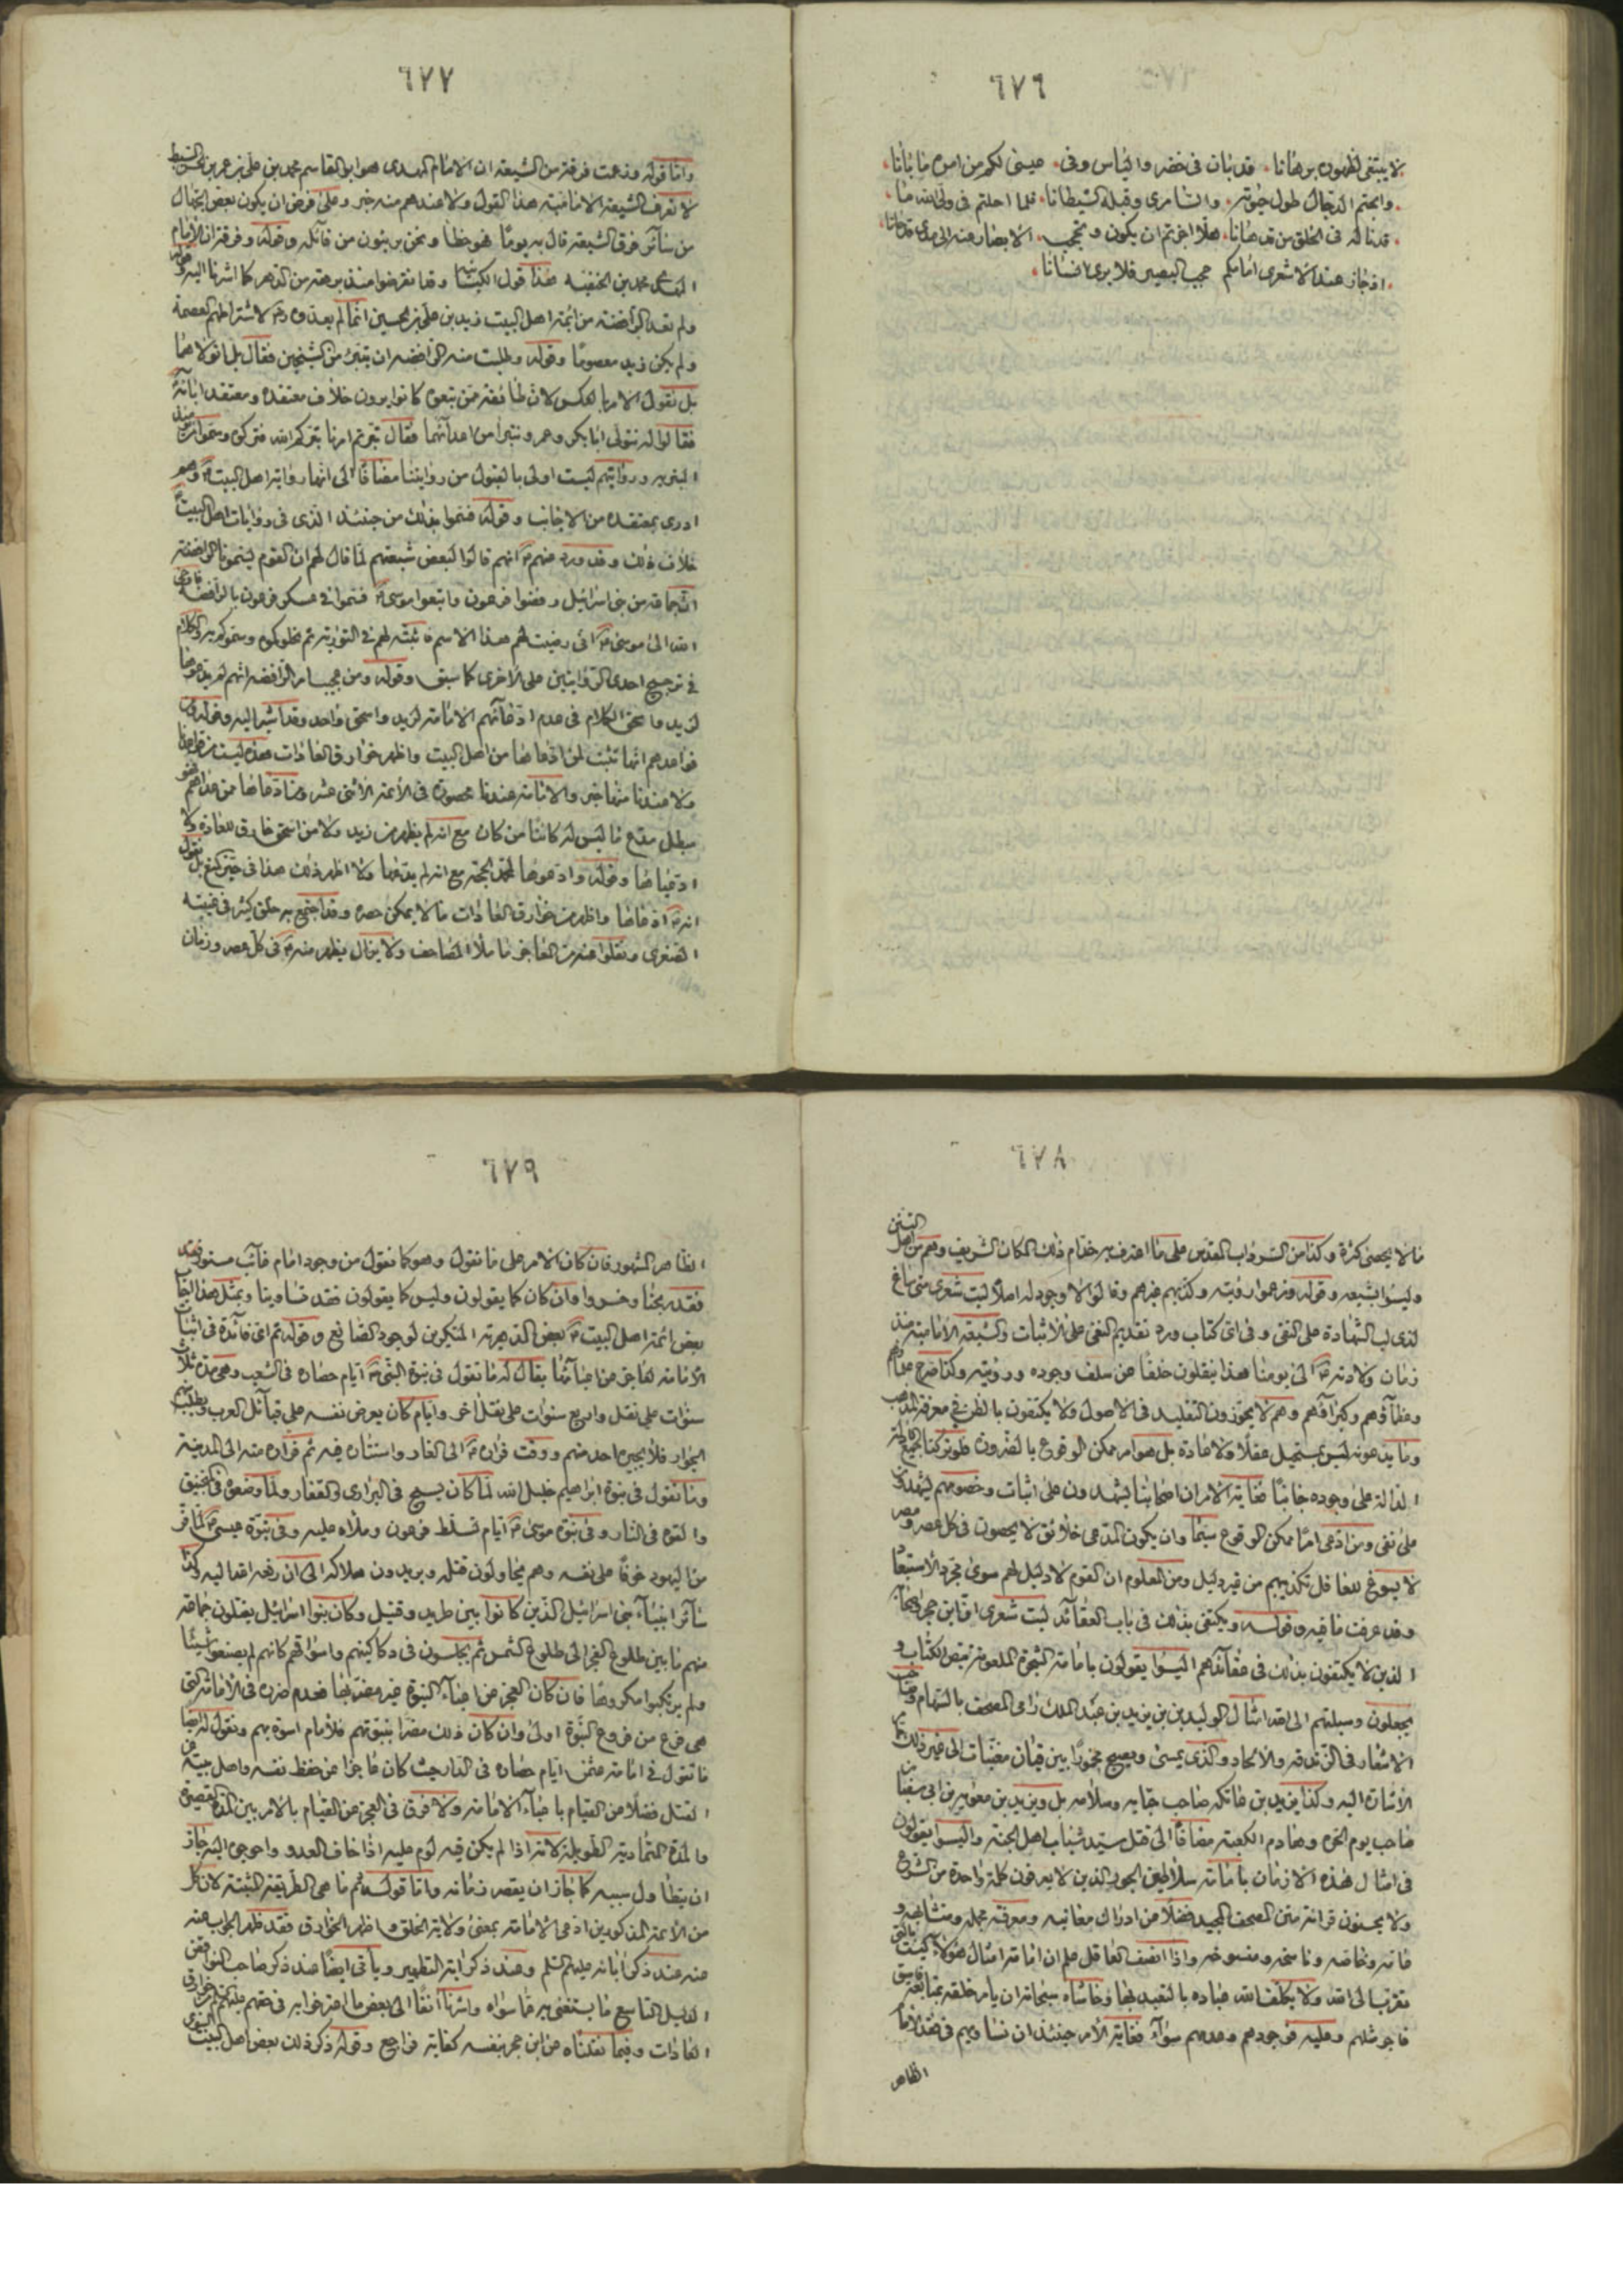 ٦٧٦
لا يبتغى لظهوره برهانا، قد بان في خضر والياس وفي، عيسى لكم من امره ما بانا،
واجتم الدجال طول حيوته، والسامرى وقبله الشيطانا، فلما احلتم في ولي الله ما،
قدنا له في الخلق من قد هانا، هلا اجزتم ان يكون ويحجب، الابصار عنه الى مدى
اذ جاز عند الاشعرى امامكم عجب البصير فلا يرى انسانا،
٦٧٧
واما قوله وزعمت فرقة من الشيعة ان الامام المهدى هو ابو القاسم محمد بن على بن عمر بن السبط
لا تعرف الشيعة الامامية هذا القول ولا عندهم منه خبر وعلى فرض ان يكون بعض الجهال
من سائر فرق الشيعة قال به يوما فهو خطأ ونحن بريئون من قائله وقوله وفرقة ان الامام
المهدى محمد بن الحنفيه هذا قول وقد انقرضوا منذ برهة من الدهر كما اشرنا اليه وقوله
ولم تعد الرافضة من ائمة اهل البيت زيد بن على بن الحسين انما لم يعدوه لاشتراطهم العصمة
ولم يكن زيد معصوما وقوله وطلبت منه الرافضه ان يتبرئ من الشيخين فقال بل اتولاهما
بل نقول الامر بالعكس لان طائفة ممن تبعوه كانوا يرون خلاف معتقده ومعتقد ابائه
فقالوا له نتولى ابا بكر وعمر ونتبرأ من اعدائهما فقال بترتم امرنا بتركم الله فتركوه وسموا
البتريه وروايتهم ليست اولى بالقبول من روايتنا مضافا الى انها رواية اهل البيت وهم
ادرى بمعتقده من الاجانب وقوله فسموا بذلك من حينئذ الذى في روايات اهل البيت
خلاف ذلك وقد ورد عنهم انهم قالوا لبعض شيعتهم لما قال لهم ان القوم يسمونا الرافضة
ان جماعة من بنى اسرائيل رفضوا فرعون واتبعوا موسى فسموا في عسكر فرعون بالرافضة فاوحى
الله الى موسى انى رضيت لهم هذا الاسم فاثبته لهم في التورية ثم نحلوكموه وسموكم به والكلام
في ترجيح احدى الروايتين على الاخرى كما سبق وقوله ومن عجب امر الرافضه انهم لم يدعوها
لزيد واسحق الكلام في عدم ادعائهم الامامة لزيد واسحق واحد وقد اشير اليه وقوله ومن
قواعدهم انها تثبت لمن ادعاها من اهل البيت واظهر خوارق العادات هذه ليست من قواعدنا
ولا عندنا منها خبر والامامة عندنا محصورة في الائمة الاثنى عشر ومن ادعاها ممن عداهم فهو
مبطل مدع ما ليس له كائنا من كان مع انه لم يظهر من زيد ولا من اسحق خارق للعادة ولا
ادعياها وقوله وادعوها لمحمد الحجة مع انه لم يدعها ولا اظهر ذلك هذا في حيز المنع بل نقول
انه ادعاها واظهر من خوارق العادات ما لا يمكن حصره وقد اجتمع به خلق كثير في غيبته
الصغرى ونقلوا عنه من المعاجز ما ملأ المصاحف ولا يزال يظهر منه في كل عصر وزمان
٦٧٨
ما لا يحصى كثرة وكذا من السرداب المقدس على ما اعترف به خدام ذلك المكان الشريف وهم من اهل التسنن
وليسوا بشيعه وقوله وزعموا رؤيته وكذبهم غيرهم وقالوا لا وجود له اصلا ليت شعرى متى ساغ
لذى لب الشهادة على النفى وفى اى كتاب ورد تقديم النفى على الاثبات والشيعة الامامية منذ
زمان ولادته الى يومنا هذا ينقلون خلفا عن سلف وجوده ورؤيته وكذا صرح
وعظماؤهم وكبراؤهم وهم لا يجوزون التقليد في الاصول ولا يكتفون بالظن في معرفة المذهب
وما يدعونه ليس بمستحيل عقلا ولا عادة بل هو امر ممكن الوقوع بالضرورة فلو تركنا جميع الادلة
الدالة على وجوده جانبا فغاية الامر ان اصحابنا يشهدون على اثبات وخصومهم يشهدون
على نفى ومن ادعى امرا ممكن الوقوع سيما وان يكون المدعى خلائق لا يحصون في كل عصر ومصر
لا يسوغ للعاقل تكذيبهم من غير دليل ومن المعلوم ان القوم لا دليل لهم سوى مجرد الاستبعاد
وقد عرفت ما فيه وقوله ويكتفى بذلك في باب العقائد ليت شعرى
الذين لا يكتفون بذلك في عقائدهم اليسوا يقولون بامامة الشجرة الملعونة بنص الكتاب و
يجعلون وسيلتهم الى الله امثال الوليد بن يزيد بن عبد الملك رامى المصحف بالسهام وصاحب
الاشعار في الزندقة والالحاد والذى يمسى ويصبح مخمورا بين قيان مغنيات الى غير ذلك
الاشارة اليه وكذا يزيد بن عاتكه صاحب حبابه وسلامه بل ويزيد بن معوية بن ابى سفيان
صاحب يوم الحره وهادم الكعبة مضافا الى قتل سيد شباب اهل الجنة واليسوا يقولون
في امثال هذه الازمان بامامة سلاطين الجور الذين لا يعرفون كلمة واحدة من الشرع
ولا يحسنون قرائة متن المصحف المجيد فضلا عن ادراك معانيه ومعرفة مجمله ومتشابهه و
عامه وخاصه وناسخه ومنسوخه واذا انصف العاقل علم ان امامة امثال هؤلاء ليست بالتى
تقربنا الى الله ولا يكلف الله عباده بالتعبد بها وحاشاه سبحانه ان يأمر خلقه بمتابعة فاسق
فاجر مثلهم وعليه فوجودهم وعدمهم سواء فغاية الامر حينئذ ان نساويهم في فقد الامام
الظاهر
٦٧٩
الظاهر المشهور فان كان الامر على ما نقول وهو كما نقول من وجود امام غائب مستور
فقد ربحنا وخسروا وان كان كما يقولون وليس كما يقولون فقد تساوينا وبمثل هذا اجاب
بعض ائمة اهل البيت بعض الدهرية المنكرين لوجود الصانع وقوله ثم اى فائدة في اثبات
الامامة لعاجز عن اعبائها يقال له ما تقول في نبوة النبى ايام حصاره في الشعب وهى مدة ثلاث
سنوات على نقل واربع سنوات على نقل اخر وايام كان يعرض نفسه على قبائل العرب ويطلب منهم
الجوار فلا يجيره احد منهم ووقت فراره الى الغار واستتاره فيه ثم فراره منه الى المدينة
وما تقول في نبوة ابراهيم خليل الله لما كان يسيح في البرارى والقفار ولما وضعوه في المنجنيق
والقوه في النار وفى نبوة موسى ايام تسلط فرعون وملاءه عليه وفى نبوة عيسى لما فر
من اليهود خوفا على نفسه وهم يحاولون قتله ويريدون هلاكه الى ان رفعه الله اليه وكذا
سائر انبياء بنى اسرائيل الذين كانوا بين طريد وقتيل وكان بنو اسرائيل يقتلون جماعة
منهم ما بين طلوع الفجر الى طلوع الشمس ثم يجلسون في دكاكينهم واسواقهم كانهم لم يصنعوا شيئا
ولم يرتكبوا مكروها فان كان العجز عن اعباء النبوة غير مضر بها فعدم ضرره في الامامة التى
هى فرع من فروع النبوة اولى وان كان ذلك مضرا بنبوتهم فللامام اسوة بهم ونقول له ايضا
ما تقول في امامة عثمن ايام حصاره في الدار حيث كان عاجزا عن حفظ نفسه واهل بيته من
القتل فضلا عن القيام باعباء الامامة ولا فرق في العجز عن القيام بالامر بين المدة القصيرة
والمدة المتمادية الطويلة لانه اذا لم يكن فيه لوم عليه اذا خاف العدو واحوجى اليه جاز
ان يتطاول سببه كما جاز ان يقصر زمانه واما قوله ثم ما هى الطريقة المثبتة لان كل
من الائمة المذكورين ادعى الامامة بمعنى ولاية الخلق واظهر الخوارق فقد ظهر الجواب عنه
عند ذكر اباءه عليهم السلم وعند ذكر اية التطهير ويأتى ايضا عند ذكر صاحب النواقض
الدليل التاسع ما يستغنى به عما سواه واشرنا انفا الى بعض ما اعترفوا به في حقهم من خوارق
العادات وفيما نقلناه عن ابن حجر نفسه كفاية فراجع وقوله ذكر ذلك بعض اهل البيت النبوى